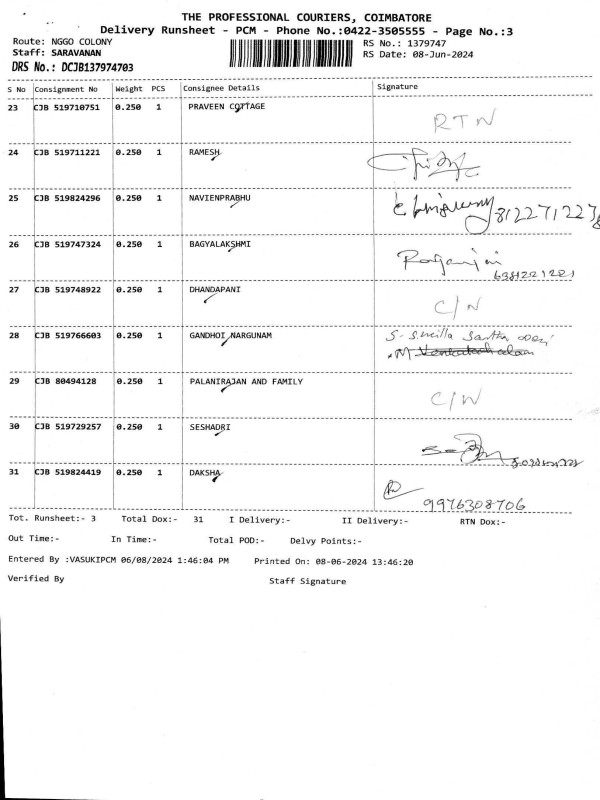 THE PROFESSIONAL COURIERS, COIMBATORE
Delivery Runsheet - PCM - Phone No.:0422-3505555 - Page No.:3
Route: NGGO COLONY
RS No.: 1379747
Staff: SARAVANAN
RS Date: 08-Jun-2024
DRS No.: DCJB137974703
S No Consignment No Weight PCS Consignee Details Signature
23 CJB 519710751 0.250 1 PRAVEEN COTTAGE RTN
24 CJB 519711221 0.250 1 RAMESH
25 CJB 519824296 0.250 1 NAVIENPRABHU
26 CJB 519747324 0.250 1 BAGYALAKSHMI
27 CJB 519748922 0.250 1 DHANDAPANI C/N
28 CJB 519766603 0.250 1 GANDHOI NARGUNAM
29 CJB 80494128 0.250 1 PALANIRAJAN AND FAMILY
30 CJB 519729257 0.250 1 SESHADRI
31 CJB 519824419 0.250 1 DAKSHA 9976308706
Tot. Runsheet:- 3 Total Dox:- 31 I Delivery:- II Delivery:- RTN Dox:-
Out Time:- In Time:- Total POD:- Delvy Points:-
Entered By :VASUKIPCM 06/08/2024 1:46:04 PM Printed On: 08-06-2024 13:46:20
Verified By Staff Signature